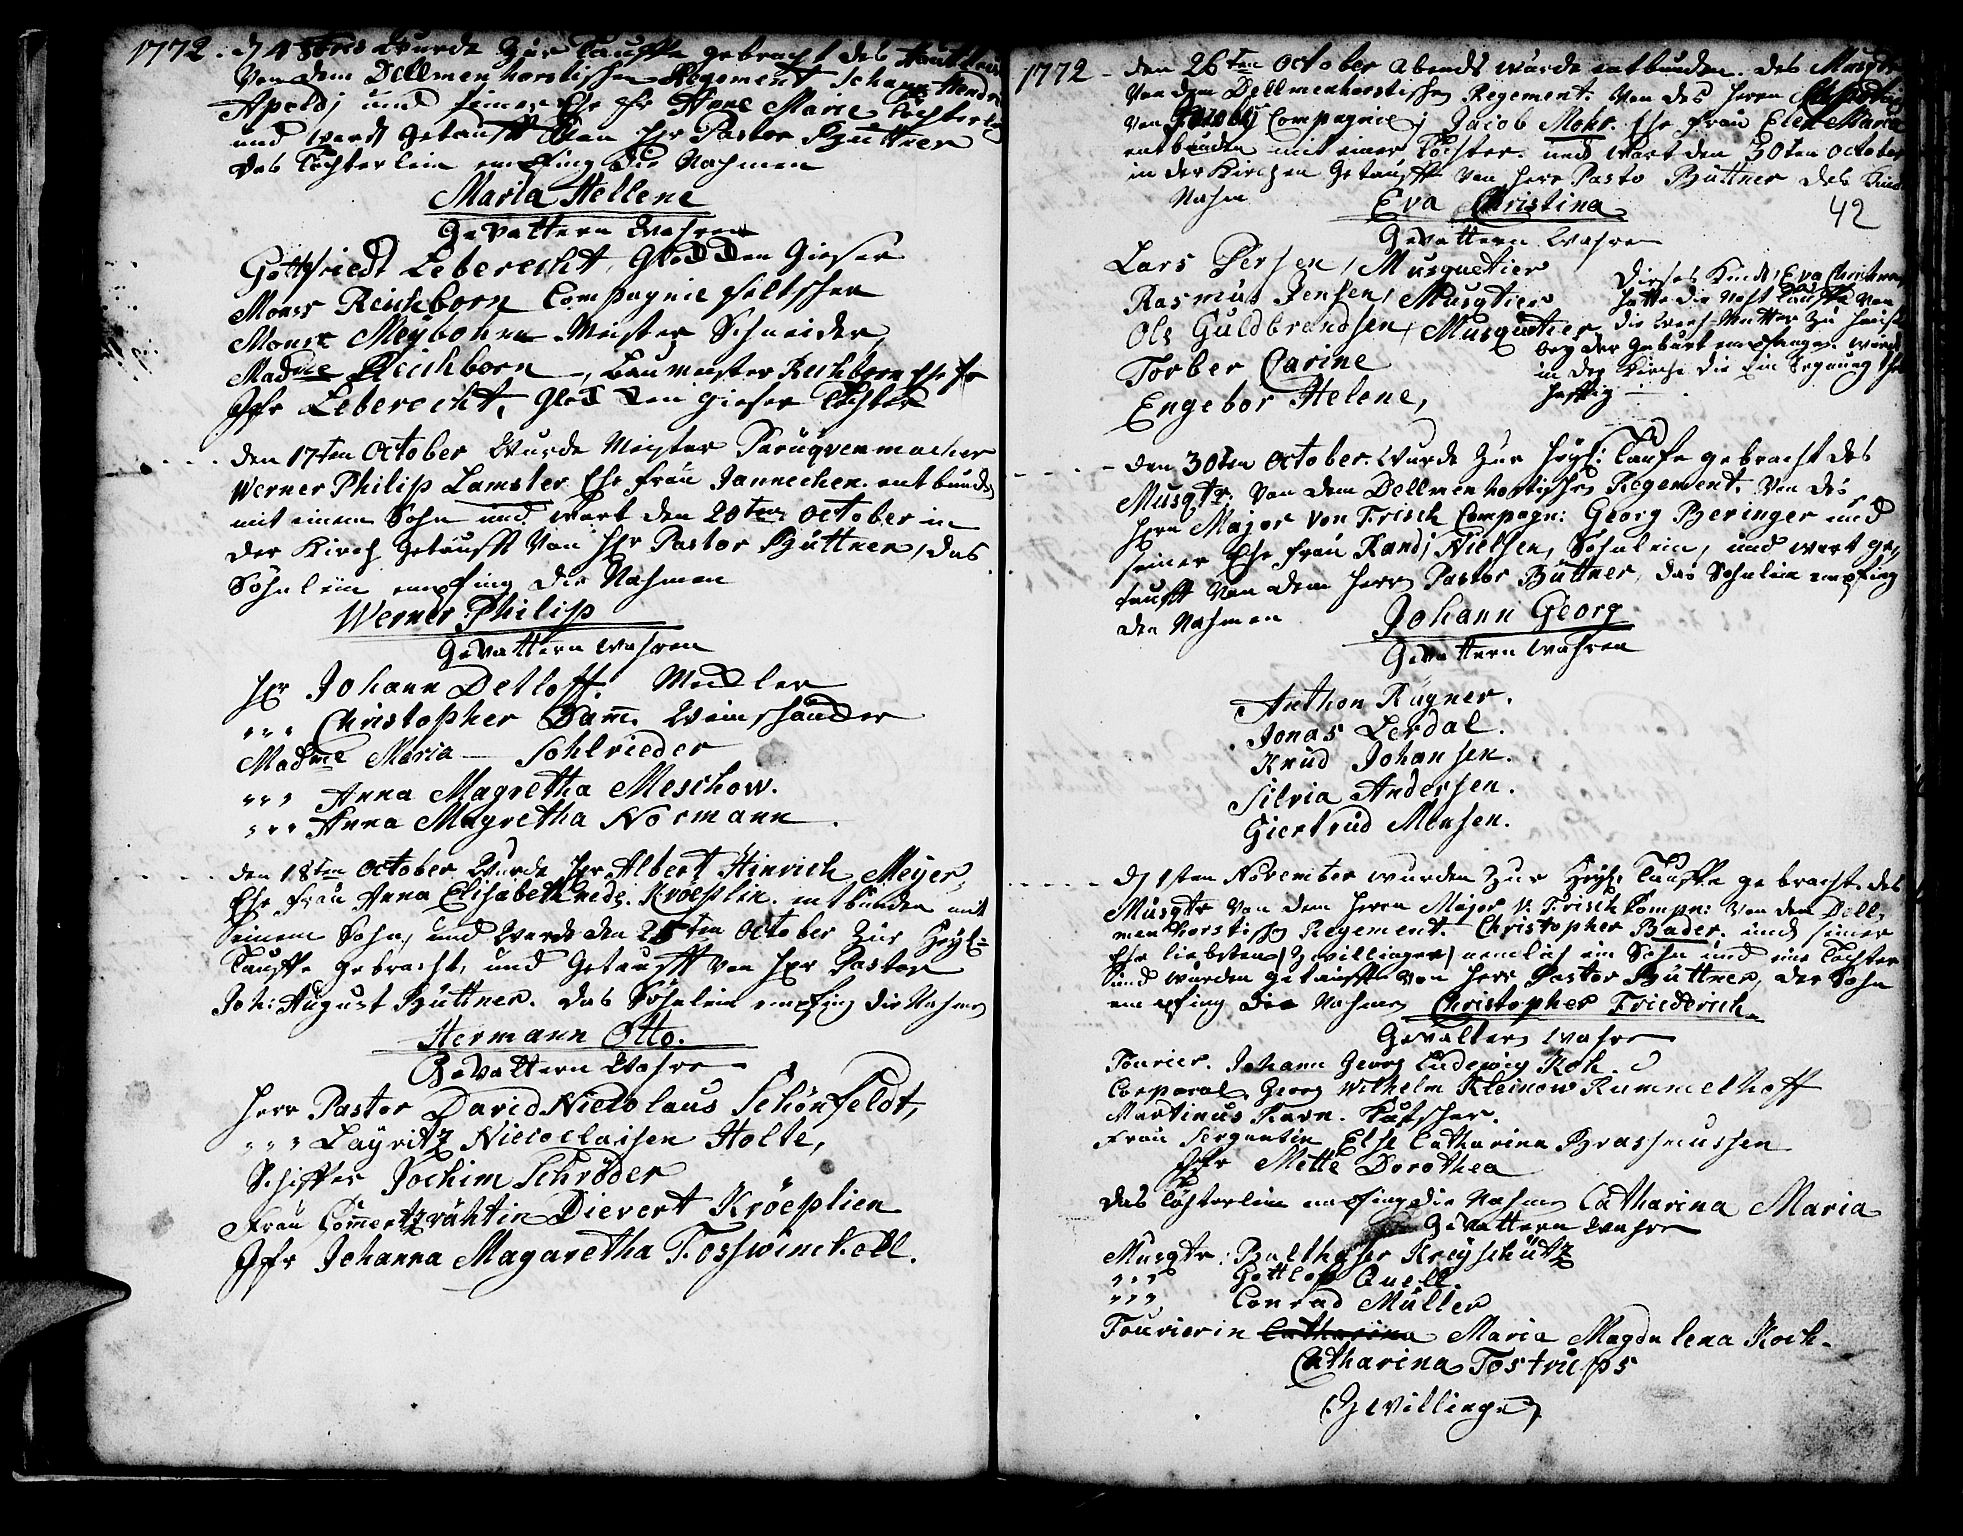 1772. d 4 8bris Wurde Zur Tauffe gebracht des
Von dem Dellmenhorstischen Regement Johann Hendr
Apoldj und seiner Ehe fr Anne Marie Töchterlein
und ward Getaufft Von Hr Pastor Büttner
das Töchterlein empfing die Nahmen
Maria Hellene
Gevattern Wahren
Gottfriedt Leberecht, Glocken Gieser
Monsr Reichborn Compagnie feltscher
Monsr Meybohm Meister Schneider
Madme Reichborn, Baumeister Reichborn Ehe fr
Jfr Leberecht, Glocken Gieser Tochter
den 17ten October Wurde Meister Peruqvenmacher
Werner Philip Lamster Ehe frau Jannechen entbunden
mit einem Sohn und Wart den 20ten October in
der Kirch Getaufft Von Hr Pastor Büttner, das
Söhnlein empfing die Nahmen
Werner Philip
Gevattern Wahren
Hr Johann Detloff. Meckler
,,, Christopher Dam. Weinschencker
Madme Maria Sohlrieder
,,, Anna Magretha Meschow.
,,, Anna Magretha Normann.
den 18ten October Wurde Hr Albert Hinrich Meyer,
Ehe frau Anna Elisabeth Krôeplin. entbunden mit
einem Sohn, und Warde den 25ten October Zur Heyl:
Tauffe gebracht, und Getaufft von Hr Pastor
Joh: August Büttner. das Söhnlein empfing die Nahmen
Hermann Otto.
Gevattern Wahren
Herr Pastor David Nicolaus Schönfeldt,
,,, Layritz Nicoclaisen Holte,
Schiffer Jochim Schröder
Frau Comertzrähtin Dievert Kröeplien
Jfr Johanna Magaretha Fosswinckell.
1772. den 26ten October Abends wurde entbunden. des Musqtr
Von dem Dellmenhorstischen Regement. Von des Herrn
Von Compagnie, Jacob Mohr. Ehe frau Elen Maria
entbunden mit einer Tochter. und Wart den 30ten October
in der Kirchen Getaufft Von Herr Pasto Büttner des Kind
Nahm Eva Christina
42
Gevattern Wahren
Lars Persen, Musquetier
Rasmus Jensen, Musqtier
Ole Guldbrandsen, Musquetier
Torber Carine
Engebor Helene,
Dieses Kindt, Eva Christina
hatte die Noht Tauffe Von
die Weh-Mutter Zu Hause
bey der Geburt empfangen wurde
in der Kirche die Ein Segnung
hafftig
den 30ten October. Wurde Zur Heyl: Taufe gebracht des
Musqtr. Von dem Dellmenhorstischen Regement. Von des
Hern Major Von Frisch Compagn: Georg Beringer und
seiner Ehe frau Randj Nielsen, Söhnlein, und wart ge,
taufft Von dem Herrn Pastor Büttner, das Söhnlein empfing
den Nahmen Johann Georg
Gevattern Wahren
Anthon Rugner.
Jonas Lerdal.
Knud Johansen.
Silvia Andersen.
Giertrud Monsen.
d 1sten November wurden Zur Heyl: Tauffe gebracht des
Musqtr Von dem Herrn Major V: Frisch Comp: Von dem Dell,
menhorstischen Regement. Christopher Bader. und seiner
Ehe liebsten (Zwillinger) nemlich ein Sohn und eine Tochter
und wurden getaufft Von Herr Pastor Büttner, der Sohn
empfing die Nahmen Christopher Friederich
Gevattern Wahren
Fourier. Johann Georg Ludewig Koh.
Corporal Georg Wilhelm Kleinow Rummelhoff
Martinus Ravn. Kutscher.
Frau Sergentin Else Catharina Brasmussen
Jfr Mette Dorothea
das Töchterlein empfing die Nahmen Catharina Maria
Gevattern Wahren
Musqtr: Balthaser Kreyschütz
,,, Gottlob Quell.
,,, Conrad Müller
Fourierin Catharina Maria Magdalena Koch.
Catharina Tostrups
(Zwillinger)